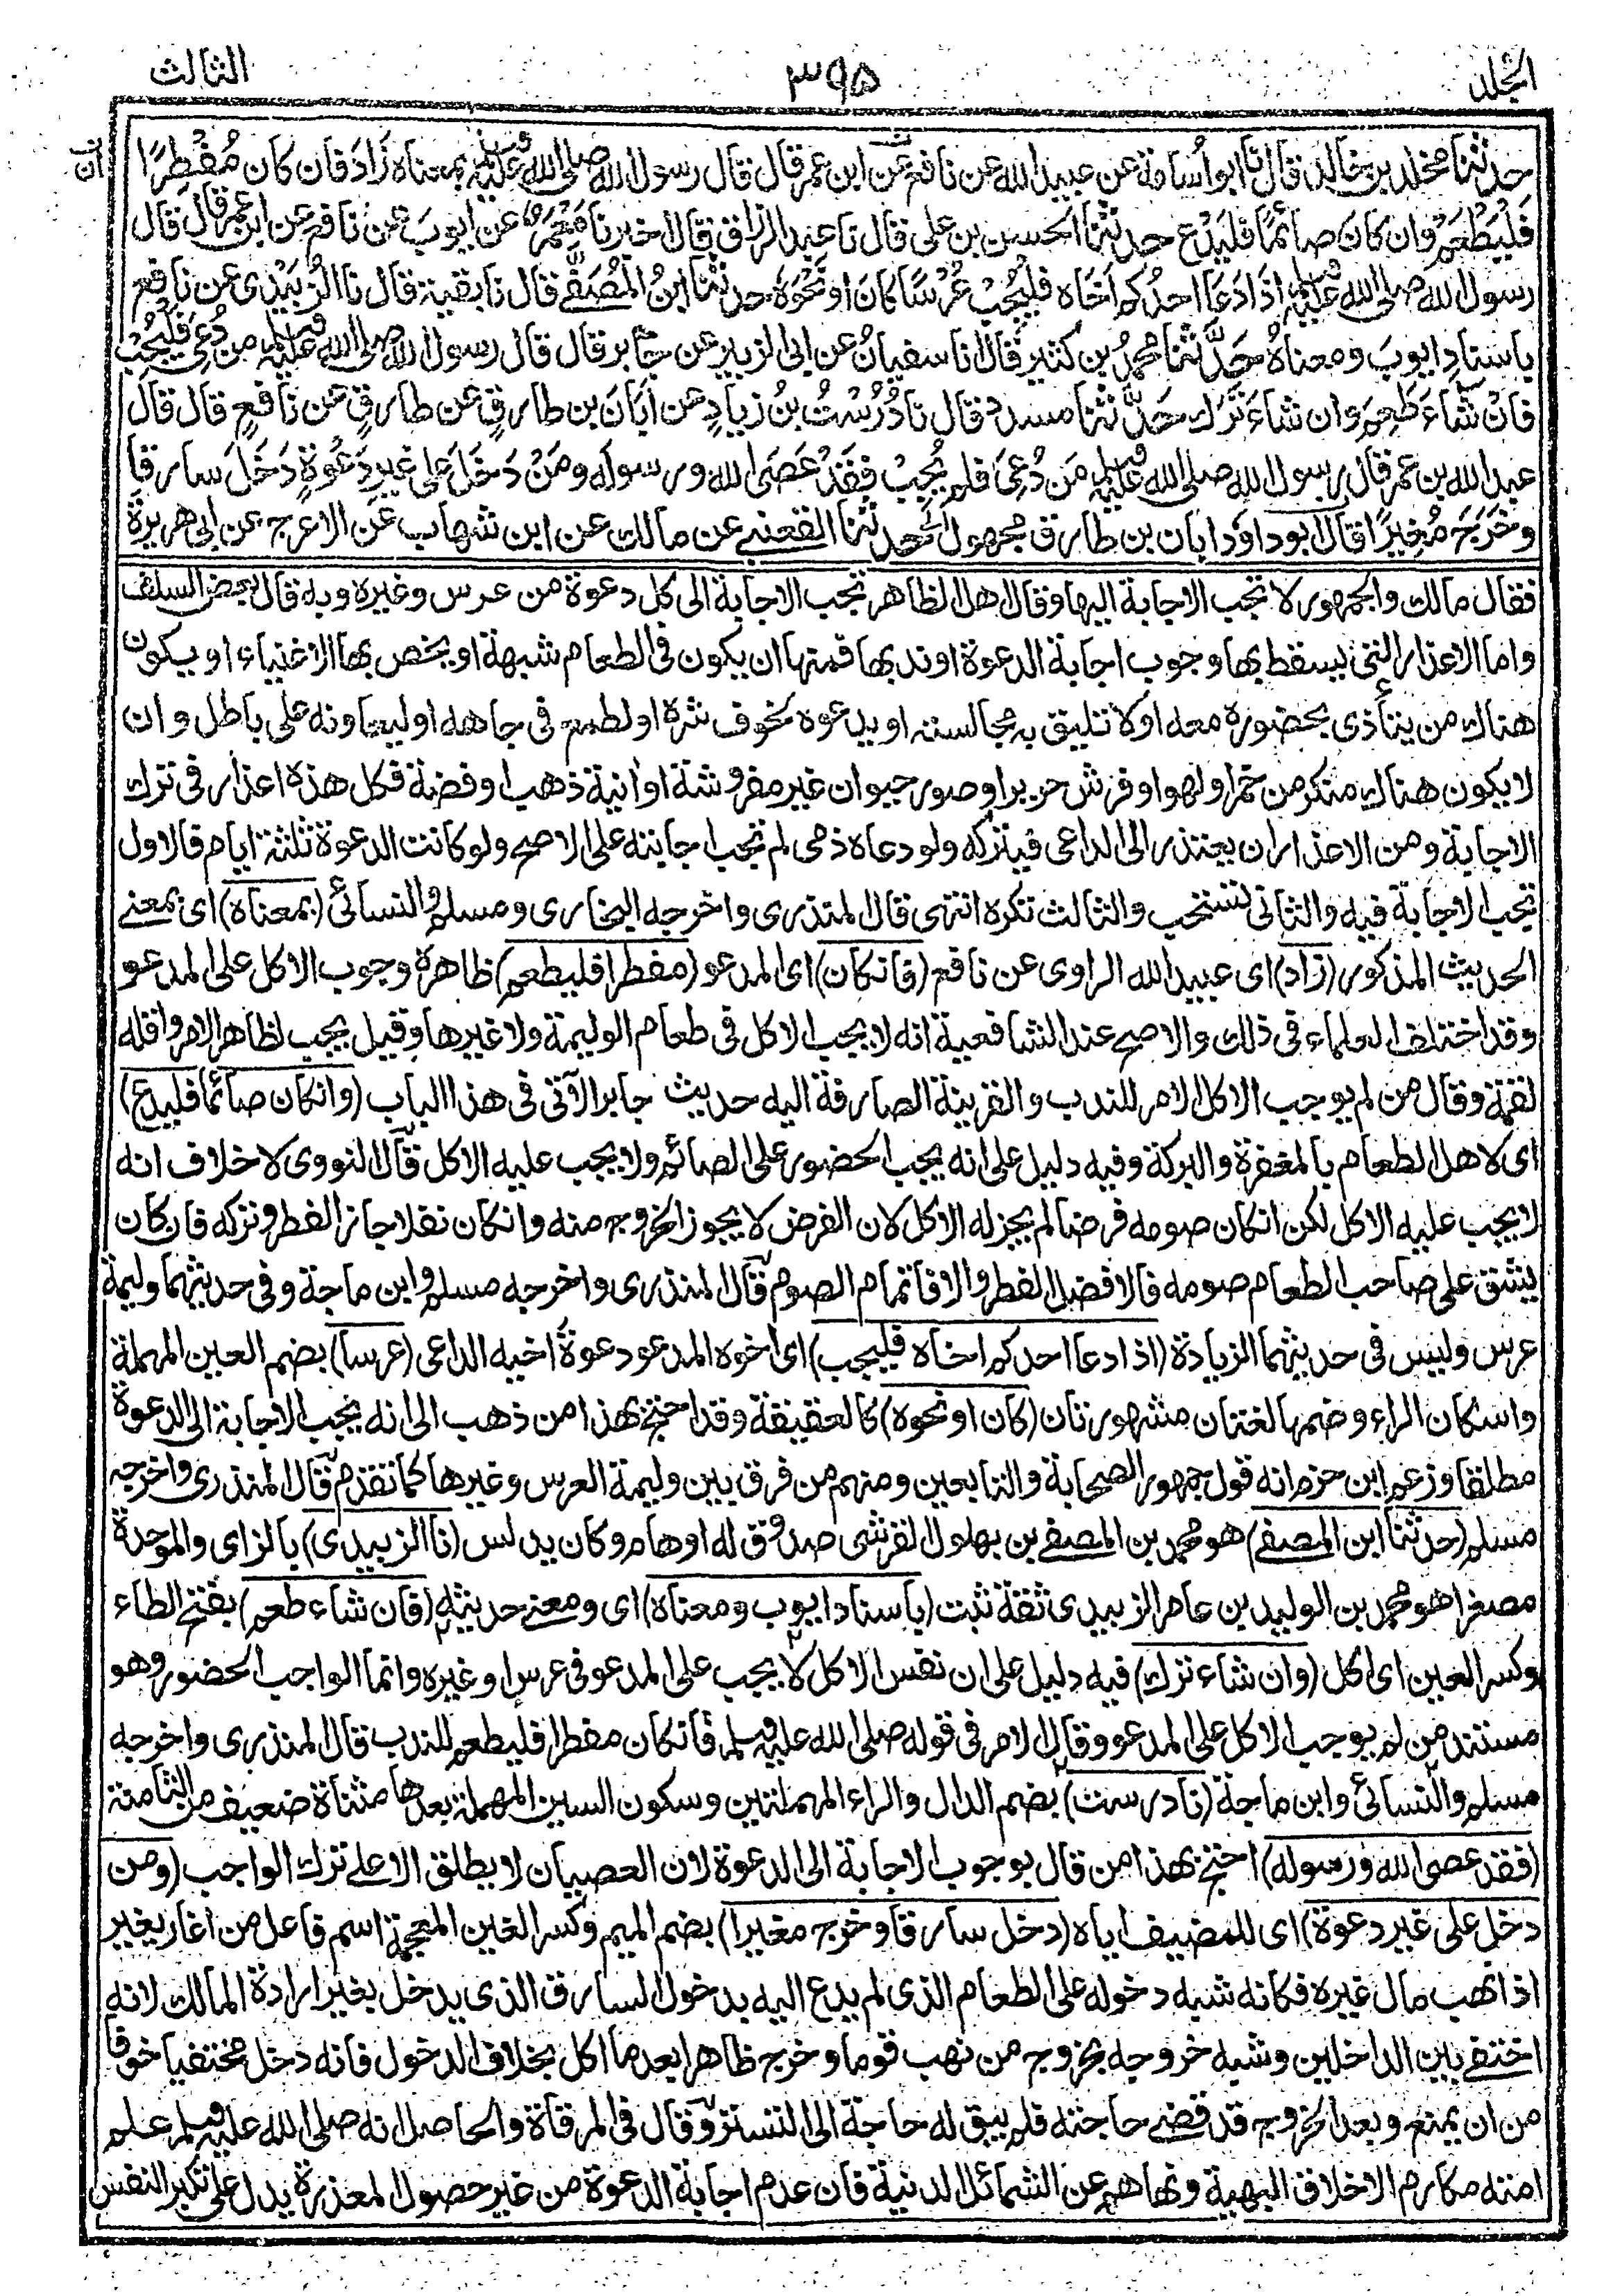 المجلد ٣٩٥ الثالث
حدثنا مخلد بن خالد قال نا ابو اسامة عن عبيد الله عن نافع عن ابن عمر قال قال رسول الله صلى الله عليه وسلم بمعناه زَادَ فان كان مُفْطِرًا
فَلْيَطْعَمْ وان كان صائمًا فليَدْعُ حدثنا الحسن بن علي قال نا عبد الرزاق قال اخبرنا مَعْمَرٌ عن ايوبَ عن نافع عن ابن عمر قال قال
رسول الله صلى الله عليه وسلم اذا دَعَا احدُكم اَخَاه فليُجِبْ عُرْسًا كان او نَحْوَهُ حدثنا ابنُ المُصَفّٰى قال نا بقية قال نا الزُّبَيْدى عن نافع
باسنادِ ايوبَ ومعناهُ حَدَّثنا محمدُ بن كثير قال انا سفيانُ عن ابى الزبير عن جابر قال قال رسول الله صلى الله عليه وسلم من دُعِىَ فليُجِبْ
فانْ شَاءَ طَعِمَ وان شاءَ تَرَكَ حَدَّثنا مسدد قال نا دُرُسْتُ بنُ زيادٍ عن اَبَانَ بن طارقٍ عن طارقٍ عن نافعٍ قال قال
عبد الله بن عمر قال رسول الله صلى الله عليه وسلم مَن دُعِىَ فلم يُجِبْ فَقَدْ عَصَى الله ورسوله ومَنْ دَخَلَ على غيرِ دَعْوَةٍ دَخَلَ سارقا
وخَرَجَ مُغِيرًا قال ابو داؤد ابان بن طارق مجهول حدثنا القعنبى عن مالك عن ابن شهاب عن الاعرج عن ابى هريرة
فقال مالك والجمهور لا تجب الاجابة اليها وقال اهل الظاهر تجب الاجابة الى كل دعوة من عرس وغيره وبه قال بعض السلف
واما الاعذار التى يسقط بها وجوب اجابة الدعوة او ندبها فمنها ان يكون فى الطعام شبهة او يخص بها الاغنياء او يكون
هناك من يتأذى بحضوره معه او لا تليق به مجالسته او يدعوه لخوف شره او لطمع فى جاهه او ليعاونه على باطل وان
لا يكون هناك منكر من خمر او لهو او فرش حرير او صور حيوان غير مفروشة او انية ذهب او فضة فكل هذه اعذار فى ترك
الاجابة ومن الاعذار ان يعتذر الى الداعى فيتركه ولو دعاه ذمى لم تجب اجابته على الاصح ولو كانت الدعوة ثلثة ايام فالاول
تجب الاجابة فيه والثانى تستحب والثالث تكره انتهى قال المنذرى واخرجه البخارى ومسلم والنسائى (بمعناه) اى بمعنى
الحديث المذكور (زاد) اى عبيد الله الراوى عن نافع (فانكان) اى المدعو (مفطرا فليطعم) ظاهره وجوب الاكل على المدعو
وقد اختلف العلماء فى ذلك والاصح عند الشافعية انه لا يجب الاكل فى طعام الوليمة ولا غيرها وقيل يجب لظاهر الامر واقله
لقمة وقال من لم يوجب الاكل الامر للندب والقرينة الصارفة اليه حديث جابر الآتى فى هذا الباب (وانكان صائما فليدع)
اى لاهل الطعام بالمغفرة والبركة وفيه دليل على انه يجب الحضور على الصائم ولا يجب عليه الاكل قال النووى لا خلاف انه
لا يجب عليه الاكل لكن انكان صومه فرضا لم يجز له الاكل لان الفرض لا يجوز الخروج منه وانكان نفلا جاز الفطر وتركه فان كان
يشق على صاحب الطعام صومه فالافضل الفطر والا فاتمام الصوم قال المنذرى واخرجه مسلم وابن ماجة وفى حديثهما وليمة
عرس وليس فى حديثهما الزيادة (اذا دعا احدكم اخاه فليجب) اى اخوه المدعو دعوة اخيه الداعى (عرسا) بضم العين المهملة
واسكان الراء وضمها لغتان مشهورتان (كان او نحوه) كالعقيقة وقد احتج بهذا من ذهب الى انه يجب الاجابة الى الدعوة
مطلقا وزعم ابن حزم انه قول جمهور الصحابة والتابعين ومنهم من فرق بين وليمة العرس وغيرها كما تقدم قال المنذرى واخرجه
مسلم (حدثنا ابن المصفى) هو محمد بن المصفى بن بهلول القرشى صدوق له اوهام وكان يدلس (نا الزبيدى) بالزاى والموحدة
مصغرا هو محمد بن الوليد بن عامر الزبيدى ثقة ثبت (باسناد ايوب ومعناه) اى ومعنى حديثه (فان شاء طعم) بفتح الطاء
وكسر العين اى اكل (وان شاء ترك) فيه دليل على ان نفس الاكل لا يجب على المدعو فى عرس او غيره وانما الواجب الحضور وهو
مستند من لم يوجب الاكل على المدعو وقال الامر فى قوله صلى الله عليه وسلم فانكان مفطرا فليطعم للندب قال المنذرى واخرجه
مسلم والنسائى وابن ماجة (نا درست) بضم الدال والراء المهملتين وسكون السين المهملة بعدها مثناة ضعيف من الثامنة
(فقد عصى الله ورسوله) احتج بهذا من قال بوجوب الاجابة الى الدعوة لان العصيان لا يطلق الا على ترك الواجب (ومن
دخل على غير دعوة) اى للمضيف اياه (دخل سارقا وخرج مغيرا) بضم الميم وكسر الغين المعجمة اسم فاعل من اغار يغير
اذا نهب مال غيره فكانه شبه دخوله على الطعام الذى لم يدع اليه بدخول السارق الذى يدخل بغير ارادة المالك لانه
اختفى بين الداخلين وشبه خروجه بخروج من نهب قوما وخرج ظاهرا بعد ما اكل بخلاف الدخول فانه دخل مختفيا خوفا
من ان يمنع وبعد الخروج قد قضى حاجته فلم يبق له حاجة الى التستر وقال فى المرقاة والحاصل انه صلى الله عليه وسلم علم
امته مكارم الاخلاق البهية ونهاهم عن الشمائل الدنية فان عدم اجابة الدعوة من غير حصول المعذرة يدل على تكبر النفس